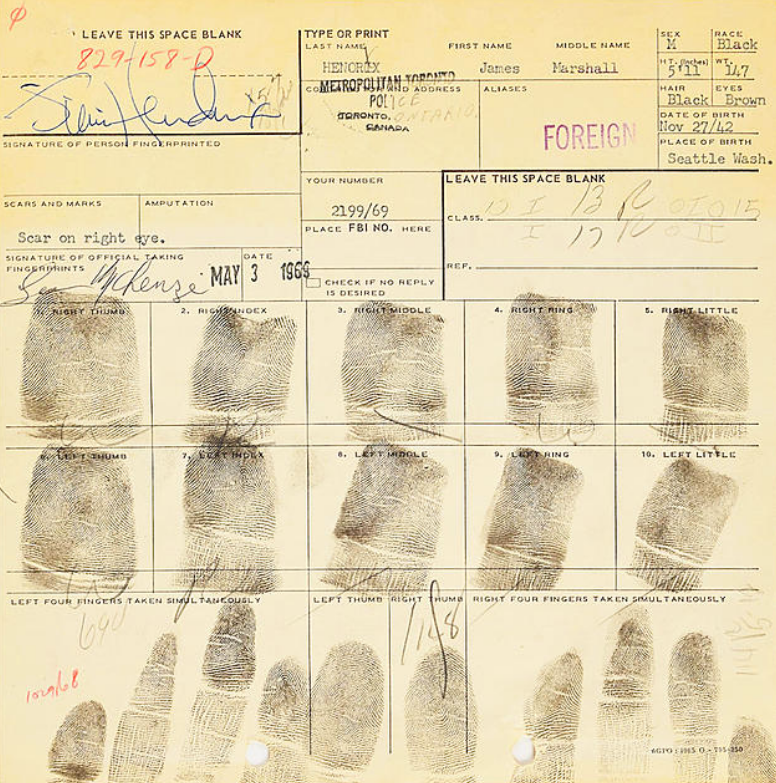 LEAVE THIS SPACE BLANK
829-158-D
TYPE OR PRINT
LAST NAME FIRST NAME MIDDLE NAME
HENDRIX James Marshall
SEX RACE
M Black
HT. (Inches) WT.
5'11 147
HAIR EYES
Black Brown
DATE OF BIRTH
Nov 27/42
PLACE OF BIRTH
Seattle Wash.
AND ADDRESS
METROPOLITAN TORONTO
POLICE
TORONTO, ONTARIO,
CANADA
ALIASES
FOREIGN
Jimi Hendrix
SIGNATURE OF PERSON FINGERPRINTED
SCARS AND MARKS AMPUTATION
Scar on right eye.
YOUR NUMBER
2199/69
PLACE FBI NO. HERE
LEAVE THIS SPACE BLANK
CLASS.
REF.
SIGNATURE OF OFFICIAL TAKING
FINGERPRINTS
DATE
MAY 3 1969
CHECK IF NO REPLY
IS DESIRED
1. RIGHT THUMB 2. RIGHT INDEX 3. RIGHT MIDDLE 4. RIGHT RING 5. RIGHT LITTLE
6. LEFT THUMB 7. LEFT INDEX 8. LEFT MIDDLE 9. LEFT RING 10. LEFT LITTLE
LEFT FOUR FINGERS TAKEN SIMULTANEOUSLY LEFT THUMB RIGHT THUMB RIGHT FOUR FINGERS TAKEN SIMULTANEOUSLY